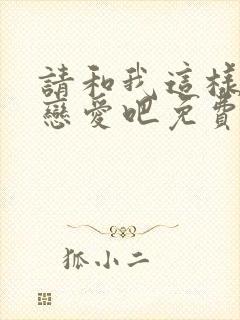 請和我這樣
戀愛吧免費
狐小二